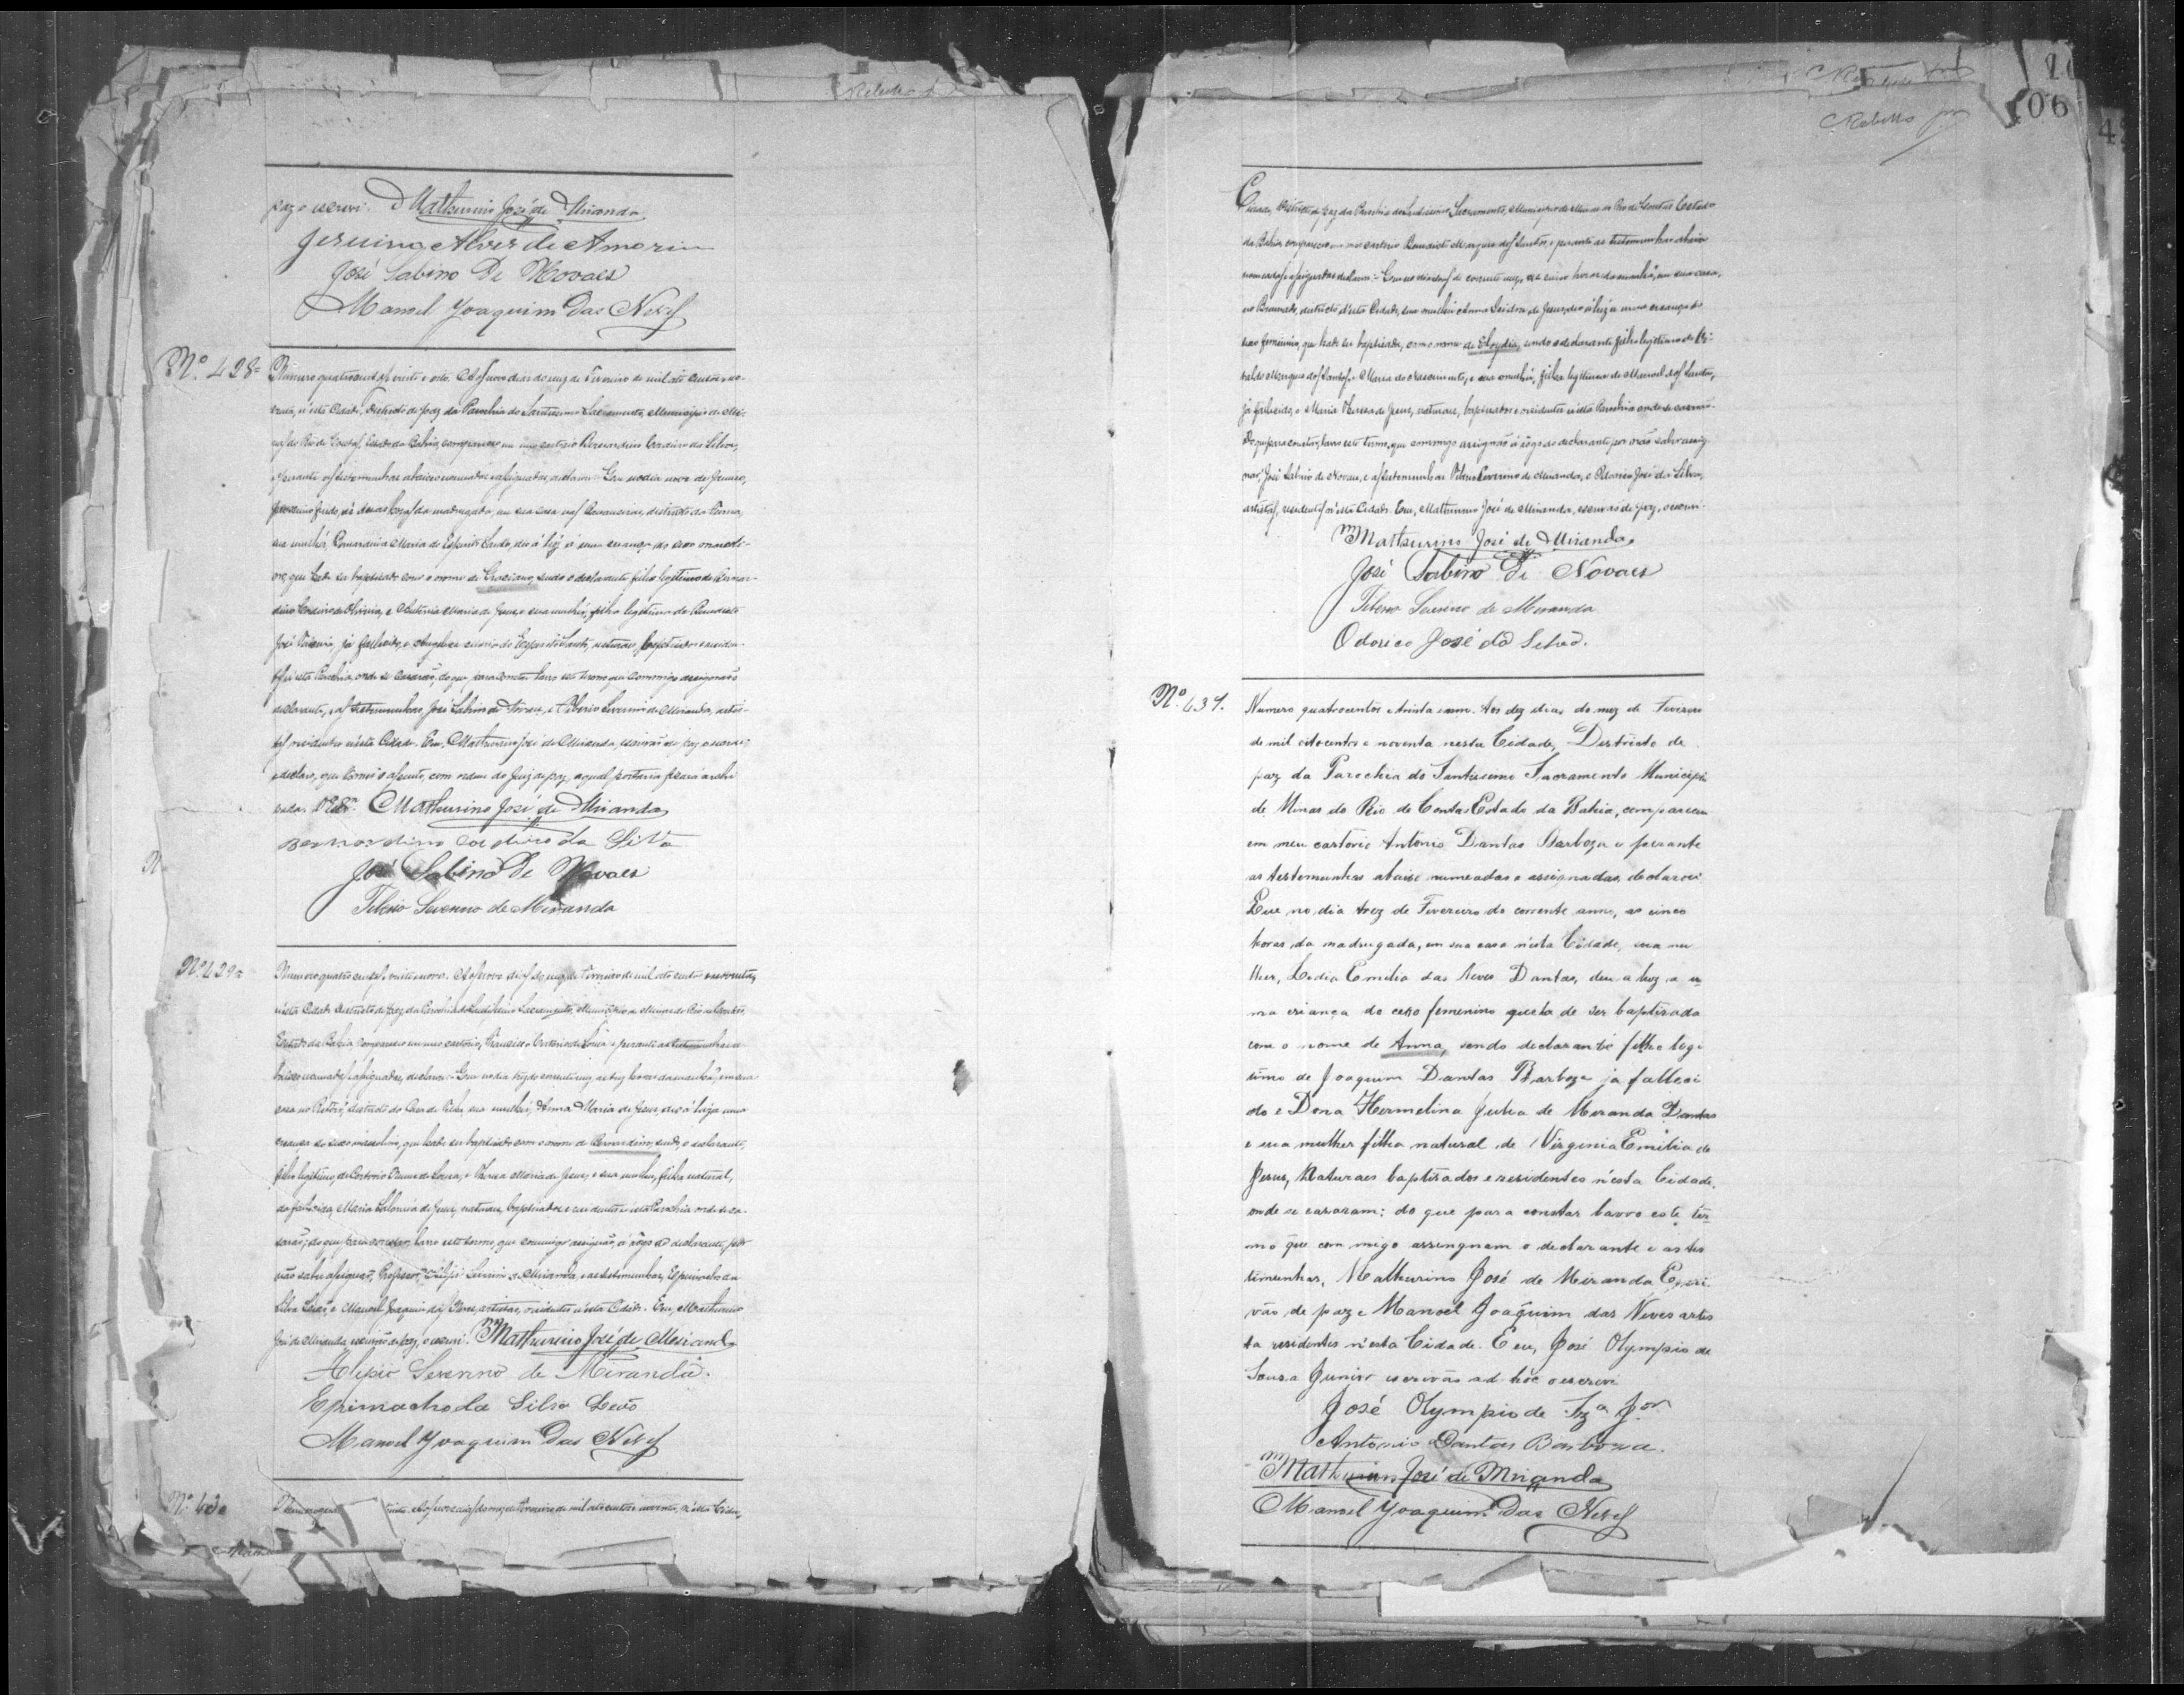 paz o escrevi. Mathurino José de Miranda
Jesuino Alves de Amorim
José Sabino de Novaes
Manoel Joaquim das Neves
Nº 428
Numero quatrocentos vinte e oito. Aos nove dias do mez de Fevereiro de mil oito centos e no-
venta, n'esta Cidade, Districto de paz da Parochia do Santissimo Sacramento, Municipio de Mi-
nas do Rio de Contas, Estado da Bahia, compareceu em meu cartorio Bernardino Cordeiro da Silva,
e perante as testemunhas abaixo nomeadas e assignadas, declarou: Que no dia nove de Janeiro,
proximo findo, ás duas horas da madrugada, em sua casa nas, districto da
sua mulher, Maria do Espirito Santo, deu á luz á uma creança do sexo masculi-
no, que hade ser baptisado com o nome de Graciano, sendo o declarante filho legitimo de Bernar-
dino Cordeiro de Oliveira, e Antonia Maria de Jesus, e sua mulher, filha legitima de Benedicto
José, já fallecido, e Angelica Maria do Espirito Santo, naturaes, baptisados e residen-
tes n'esta Parochia, onde se casarão, do que, para constar lavro este termo que commigo assignão o
declarante, e as testemunhas, José Sabino de Novaes, e Tiberio Severino de Miranda, artis-
tas residentes n'esta Cidade. Eu, Mathurino José de Miranda, escrivão de paz, o escrevi,
e declaro, que tomei o assento, com ordem do Juiz de paz, a qual portaria ficará archi-
vada. Mathurino José de Miranda
Bernardino Cordeiro da Silva
José Sabino de Novaes
Tiberio Severino de Miranda
Nº 429
Numero quatro centos vinte e nove. Aos nove dias do mez de Fevereiro de mil oito centos e noventa,
n'esta Cidade districto de paz da Parochia do Santissimo Sacramento, Municipio de Minas do Rio de Contas,
Estado da Bahia, compareceu em meu cartorio, Francisco Antonio de Souza e perante as testemunhas a-
baixo nomeadas e assignadas, declarou: Que no dia trez do corrente mez, ás trez horas da manhã, em sua
casa no, districto do, sua mulher, Anna Maria de Jesus, deu á luz a uma
creança do sexo masculino, que hade ser baptisado com o nome de Bernardino, sendo, o declarante,
filho legitimo, de Antonio de Souza, e Thereza Maria de Jesus, e sua mulher, filha natural,
da fallecida, Maria de Jesus, naturaes, baptisados e residentes n'esta Parochia onde se ca-
sarão; do que para constar, lavro este termo, que commigo assignão, á rogo do declarante, por
não saber assignar, Professor Alipio Severino de Miranda, e as testemunhas, Epimacho da
Silva Leão e Manoel Joaquim das Neves, artistas, residentes n'esta Cidade. Eu, Mathurino
José de Miranda escrivão de paz, o escrevi. Mathurino José de Miranda
Alipio Severino de Miranda.
Epimacho da Silva Leão
Manoel Joaquim das Neves
Nº 430
trinta. Aos nove dias do mez de Fevereiro de mil oito centos e noventa, n'esta Cida-
Rebello
06
Cidade, Districto de paz da Parochia do Santissimo Sacramento, Municipio de Minas do Rio de Contas Estado
da Bahia, compareceu em meu cartorio Benedicto Marques dos Santos, e perante as testemunhas abaixo
nomeadas e assignadas declarou: Que no dia do corrente mez, ás cinco horas da manhã, em sua casa,
no Brumado, districto d'esta Cidade, sua mulher Anna Isidra de Jesus, deu á luz a uma creança do
sexo feminino, que hade ser baptisada, com o nome de Elydia, sendo o declarante filho legitimo de
Marques dos Santos, e Maria do Nascimento, e sua mulher, filha legitima de Manoel dos Santos,
já fallecido, e Maria Thereza de Jesus, naturaes, baptisados e residentes n'esta Parochia onde se casarão.
Do que para constar, lavro este termo, que commigo assignão á rogo do declarante por não saber assig-
nar, José Sabino de Novaes, e as testemunhas Tiberio Severino de Miranda, e Odorico José da Silva,
artistas, residentes n'esta Cidade. Eu, Mathurino José de Miranda, escrivão de paz, o escrevi.
Mathurino José de Miranda
José Sabino de Novaes
Tiberio Severino de Miranda
Odorico José da Silva.
Nº 431.
Numero quatrocentos e trinta e um. Aos dez dias do mez de Fevereiro
de mil oitocentos e noventa nesta Cidade, Districto de
paz da Parochia do Santissimo Sacramento Municipio
de Minas do Rio de Contas Estado da Bahia, compareceu
em meu cartorio Antonio Dantas Barboza e perante
as testemunhas abaixo numeadas e assignadas, declarou:
Que no dia trez de Fevereiro do corrente anno, as cinco
horas da madrugada, em sua casa n'esta Cidade, sua mu
lher, Lidia Emilia das Neves Dantas, deu a luz a u
ma criança do cexo femenino que ha de ser baptisada
com o nome de Anna, sendo declarante filho legi
timo de Joaquim Dantas Barboza ja falleci
do e Dona Hermelina Julia de Miranda Dantas
e sua mulher filha natural de Virginia Emilia de
Jesus, Naturaes baptisados e residentes n'esta Cidade,
onde se casaram; do que para constar lavro este ter
mo que com migo assingnam o declarante e as tes
timunhas, Mathurino José de Miranda Escri
vão de paz e Manoel Joaquim das Neves artis
ta residentes n'esta Cidade. E eu, José Olympio de
Souza Junior escrivão ad hoc o escrevi
José Olympio de Sza Jor
Antonio Dantas Barboza.
Mathurino José de Miranda
Manoel Joaquim das Neves